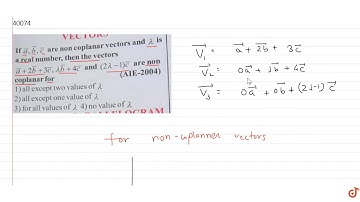 40074
VECTORS
If a̅, b̅, c̅ are non coplanar vectors and λ is
a real number, then the vectors
a̅ + 2b̅ + 3c̅, λb̅ + 4c̅ and (2λ - 1)c̅ are non
coplanar for (AIE-2004)
1) all except two values of λ
2) all except one value of λ
3) for all values of λ 4) no value of λ
V₁ = a + 2b + 3c
V₂ = 0a + λb + 4c
V₃ = 0a + 0b + (2λ-1) c
for non-coplanner vectors